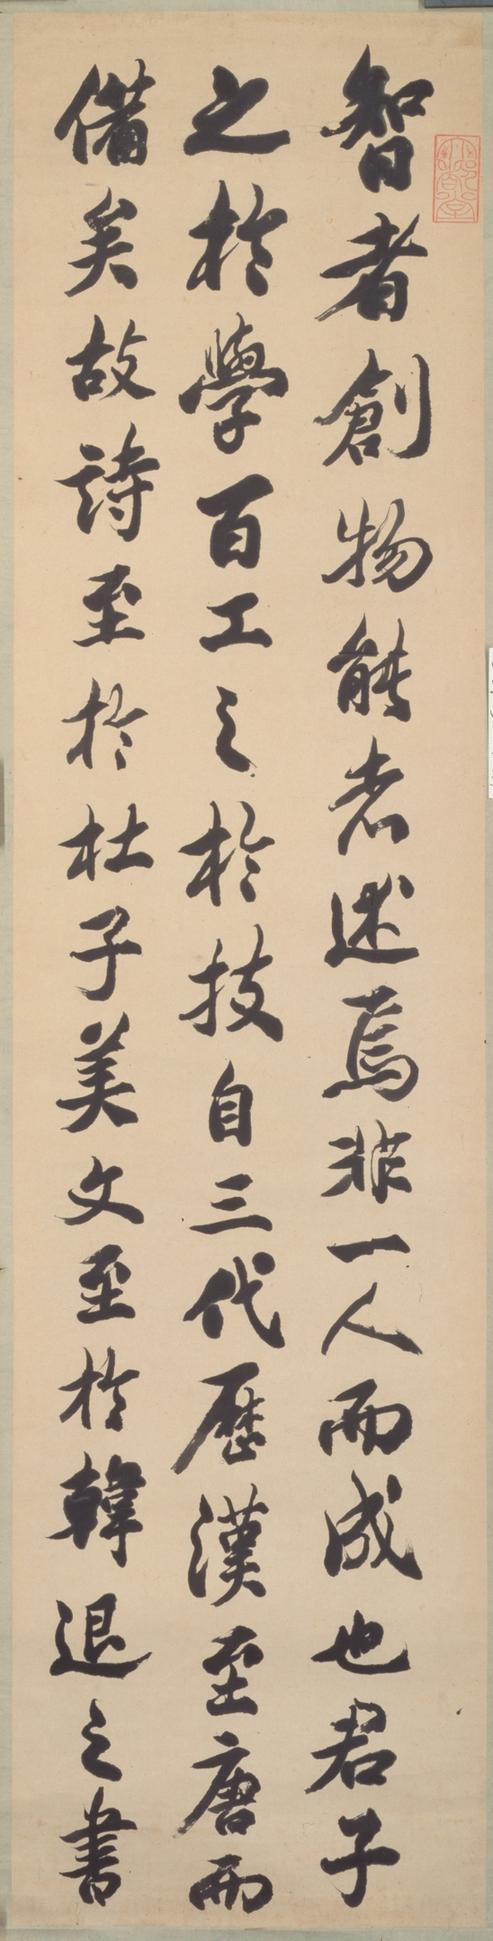 智者創物能者述焉非一人而成也君子
之於學百工之於技自三代歷漢至唐而
備矣故詩至於杜子美文至於韓退之書